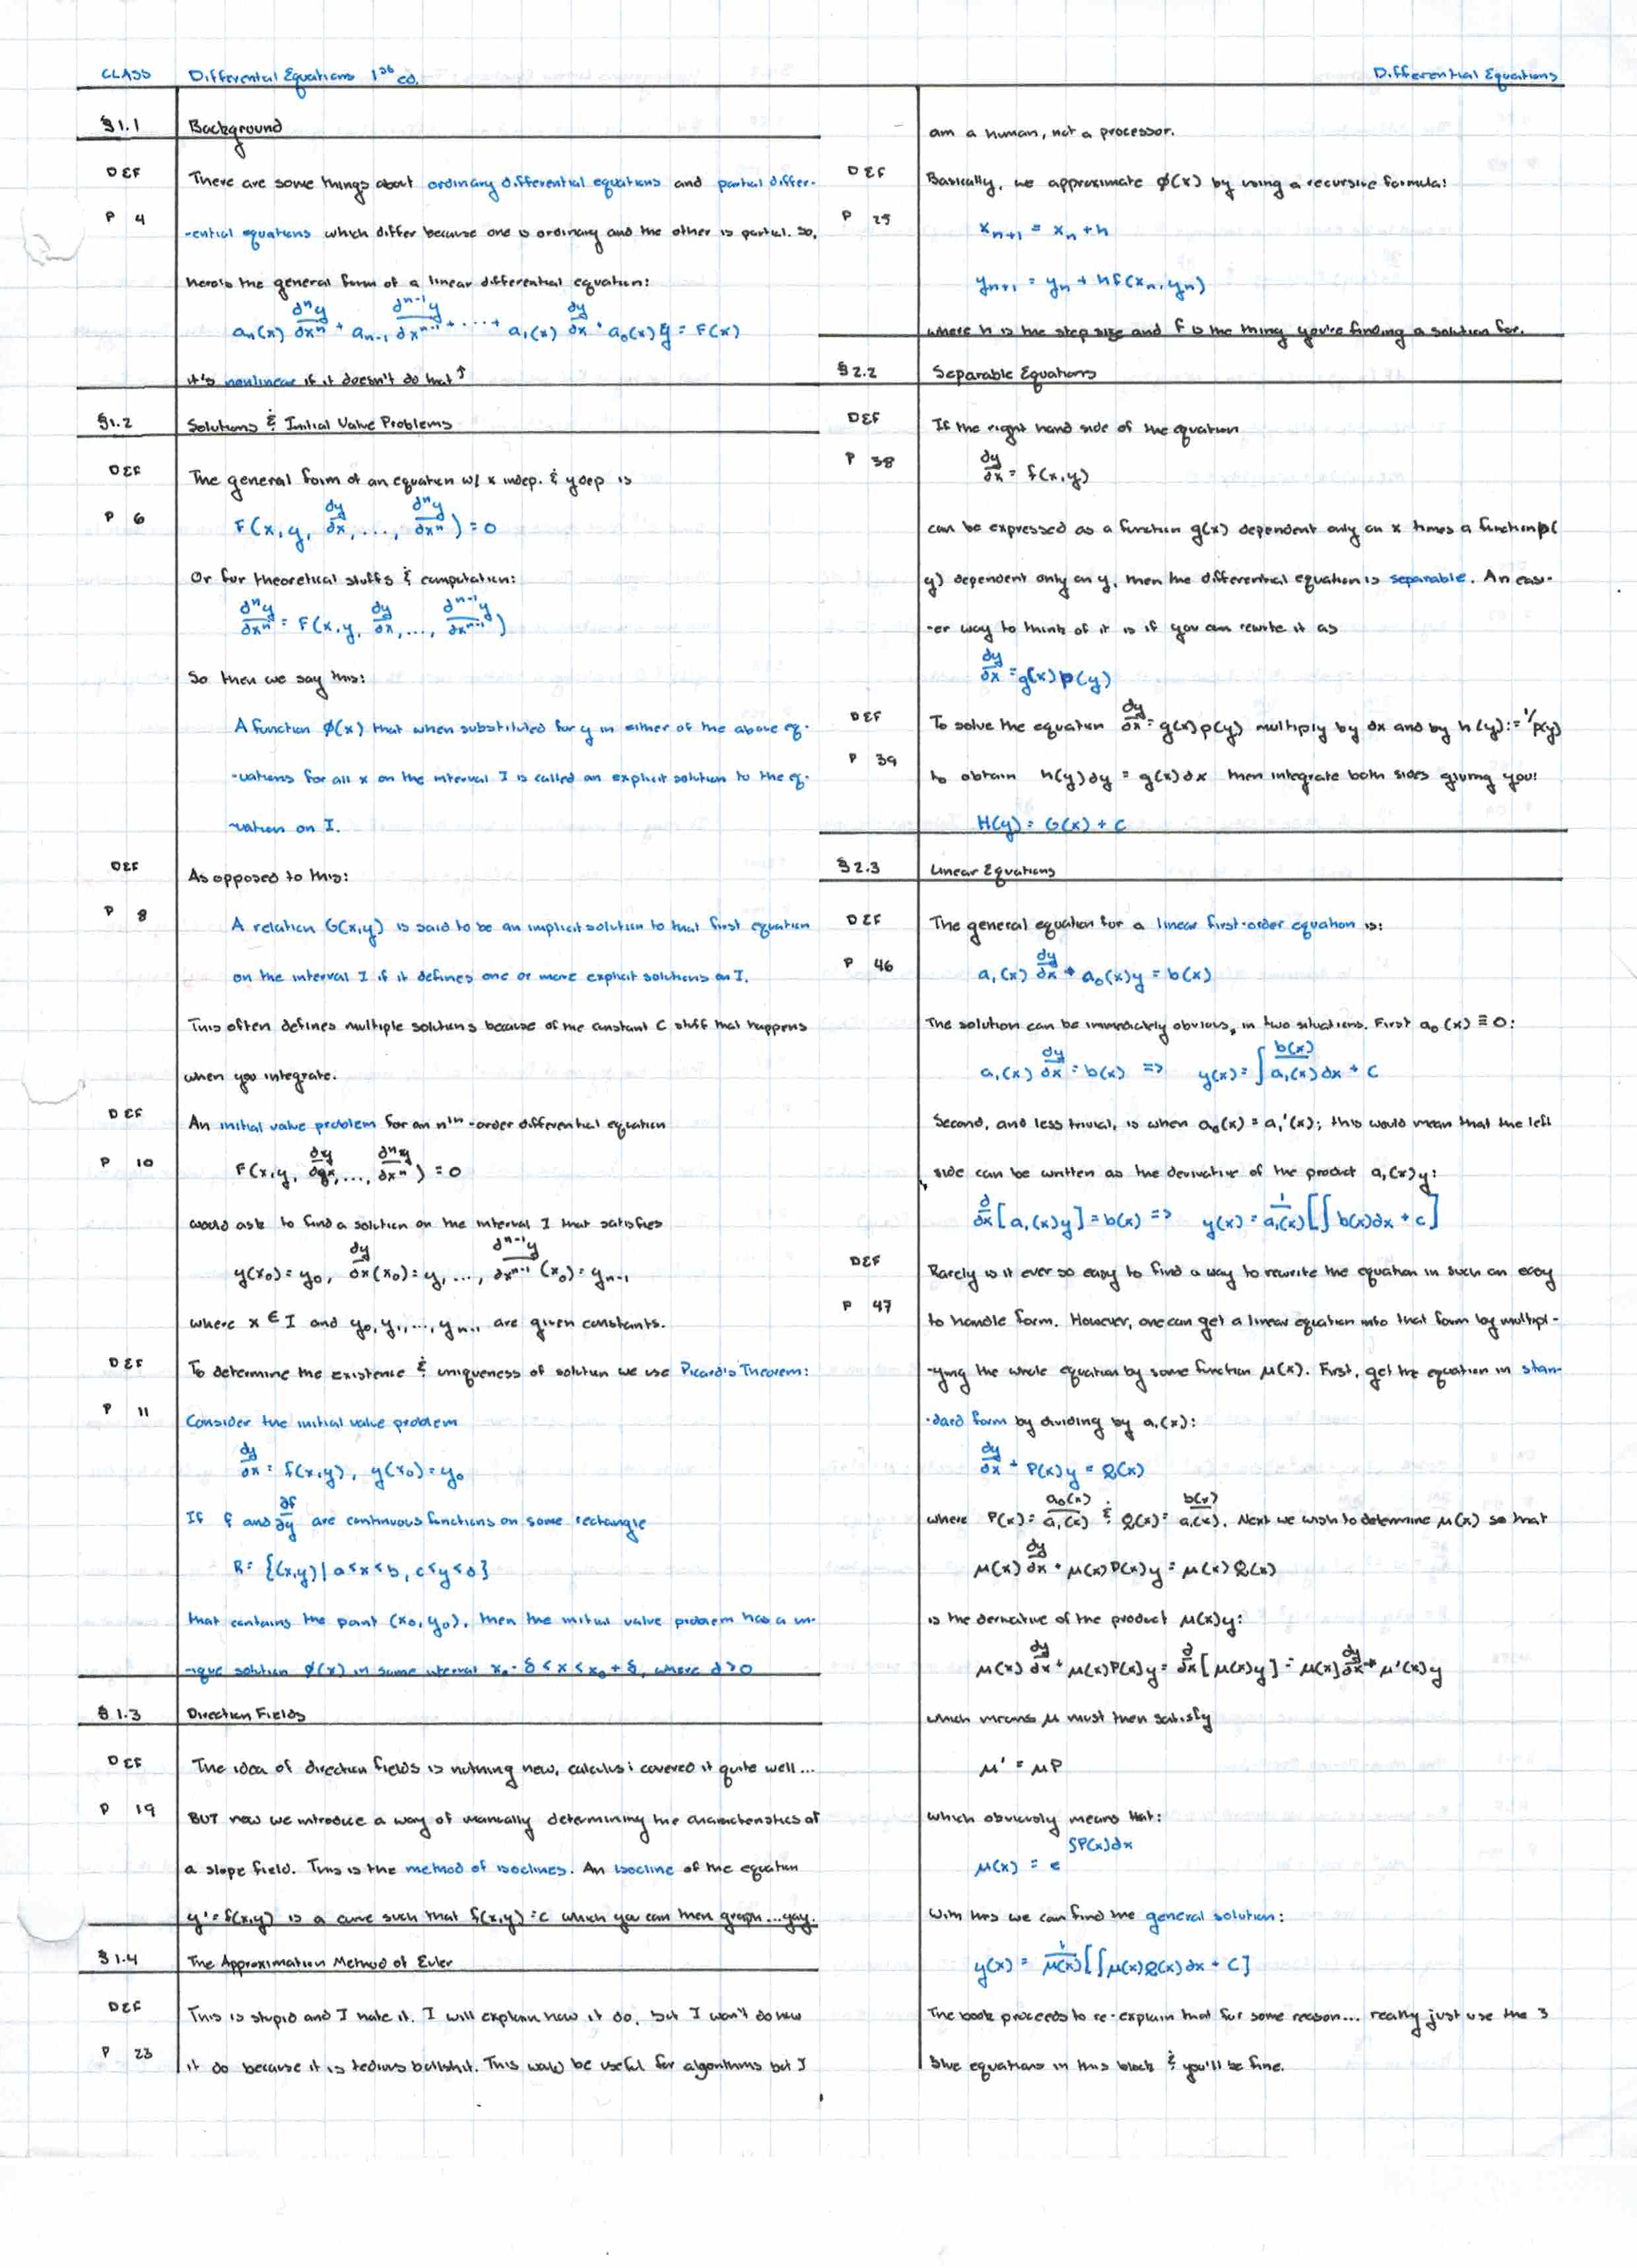 CLASS Differential Equations 1st ed. Differential Equations
§1.1 Background
DEF There are some things about ordinary differential equations and partial differ-
P 4 -ential equations which differ because one is ordinary and the other is partial. So,
here's the general form of a linear differential equation:
aₙ(x) dⁿy/dxⁿ + aₙ₋₁ dⁿ⁻¹y/dxⁿ⁻¹ + ··· + a₁(x) dy/dx + a₀(x)y = F(x)
it's nonlinear if it doesn't do that ↑
§1.2 Solutions & Initial Value Problems
DEF The general form of an equation w/ x indep. & y dep is
P 6 F(x, y, dy/dx, ..., dⁿy/dxⁿ) = 0
Or for theoretical stuffs & computation:
dⁿy/dxⁿ = F(x, y, dy/dx, ..., dⁿ⁻¹y/dxⁿ⁻¹)
So then we say this:
A function φ(x) that when substituted for y in either of the above eq-
-uations for all x on the interval I is called an explicit solution to the eq-
-uation on I.
DEF As opposed to this:
P 8 A relation G(x,y) is said to be an implicit solution to that first equation
on the interval I if it defines one or more explicit solutions on I.
This often defines multiple solutions because of the constant C stuff that happens
when you integrate.
DEF An initial value problem for an nth-order differential equation
P 10 F(x, y, dy/dx, ..., dⁿy/dxⁿ) = 0
would ask to find a solution on the interval I that satisfies
y(x₀) = y₀, dy/dx(x₀) = y₁ ..., dⁿ⁻¹y/dxⁿ⁻¹ (x₀) = yₙ₋₁
where x ∈ I and y₀, y₁, ..., yₙ₋₁ are given constants.
DEF To determine the existence & uniqueness of solution we use Picard's Theorem:
P 11 Consider the initial value problem
dy/dx = f(x,y), y(x₀) = y₀
If f and ∂f/∂y are continuous functions on some rectangle
R = {(x,y) | a<x<b, c<y<d}
that contains the point (x₀, y₀), then the initial value problem has a un-
-ique solution φ(x) in some interval x₀ - δ < x < x₀ + δ, where δ>0
§1.3 Direction Fields
DEF The idea of direction fields is nothing new, calculus i covered it quite well...
P 19 BUT now we introduce a way of manually determining the characteristics of
a slope field. This is the method of isoclines. An isocline of the equation
y' = f(x,y) is a curve such that f(x,y) = c which you can then graph...yay.
§1.4 The Approximation Method of Euler
DEF This is stupid and I hate it. I will explain how it do, but I won't do how
P 23 it do because it is tedious bullshit. This would be useful for algorithms but I
am a human, not a processor.
DEF Basically, we approximate φ(x) by using a recursive formula:
P 25 xₙ₊₁ = xₙ + h
yₙ₊₁ = yₙ + hf(xₙ, yₙ)
where h is the step size and f is the thing you're finding a solution for.
§2.2 Separable Equations
DEF If the right hand side of the equation
P 38 dy/dx = f(x,y)
can be expressed as a function g(x) dependent only on x times a function p(
y) dependent only on y, then the differential equation is separable. An easi-
-er way to think of it is if you can rewrite it as
dy/dx = g(x)p(y)
DEF To solve the equation dy/dx = g(x)p(y) multiply by dx and by h(y):= 1/p(y)
P 39 to obtain h(y)dy = g(x)dx then integrate both sides giving you:
H(y) = G(x) + C
§2.3 Linear Equations
DEF The general equation for a linear first-order equation is:
P 46 a₁(x) dy/dx + a₀(x)y = b(x)
The solution can be immediately obvious, in two situations. First a₀(x) ≡ 0:
a₁(x) dy/dx = b(x) => y(x) = ∫ b(x)/a₁(x) dx + C
Second, and less trivial, is when a₀(x) = a₁'(x); this would mean that the left
side can be written as the derivative of the product a₁(x)y:
d/dx [a₁(x)y] = b(x) => y(x) = 1/a₁(x) [∫ b(x)dx + C]
DEF Rarely is it ever so easy to find a way to rewrite the equation in such an easy
P 47 to handle form. However, one can get a linear equation into that form by multipl-
-ying the whole equation by some function μ(x). First, get the equation in stan-
-dard form by dividing by a₁(x):
dy/dx + P(x)y = Q(x)
where P(x) = a₀(x)/a₁(x) & Q(x) = b(x)/a₁(x). Next we wish to determine μ(x) so that
μ(x) dy/dx + μ(x)P(x)y = μ(x)Q(x)
is the derivative of the product μ(x)y:
μ(x) dy/dx + μ(x)P(x)y = d/dx [μ(x)y] = μ(x) dy/dx + μ'(x)y
which means μ must then satisfy
μ' = μP
which obviously means that:
μ(x) = e^∫P(x)dx
With this we can find the general solution:
y(x) = 1/μ(x) [∫μ(x)Q(x)dx + C]
The book proceeds to re-explain that for some reason... really just use the 3
blue equations in this block & you'll be fine.